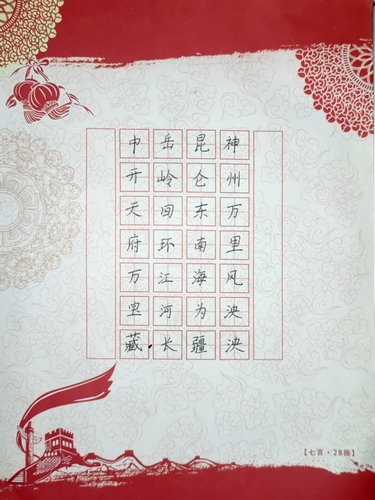 神州万里风泱泱
昆仑东南海为疆
岳岭回环江河长
中开天府万宝藏
【七言·28格】